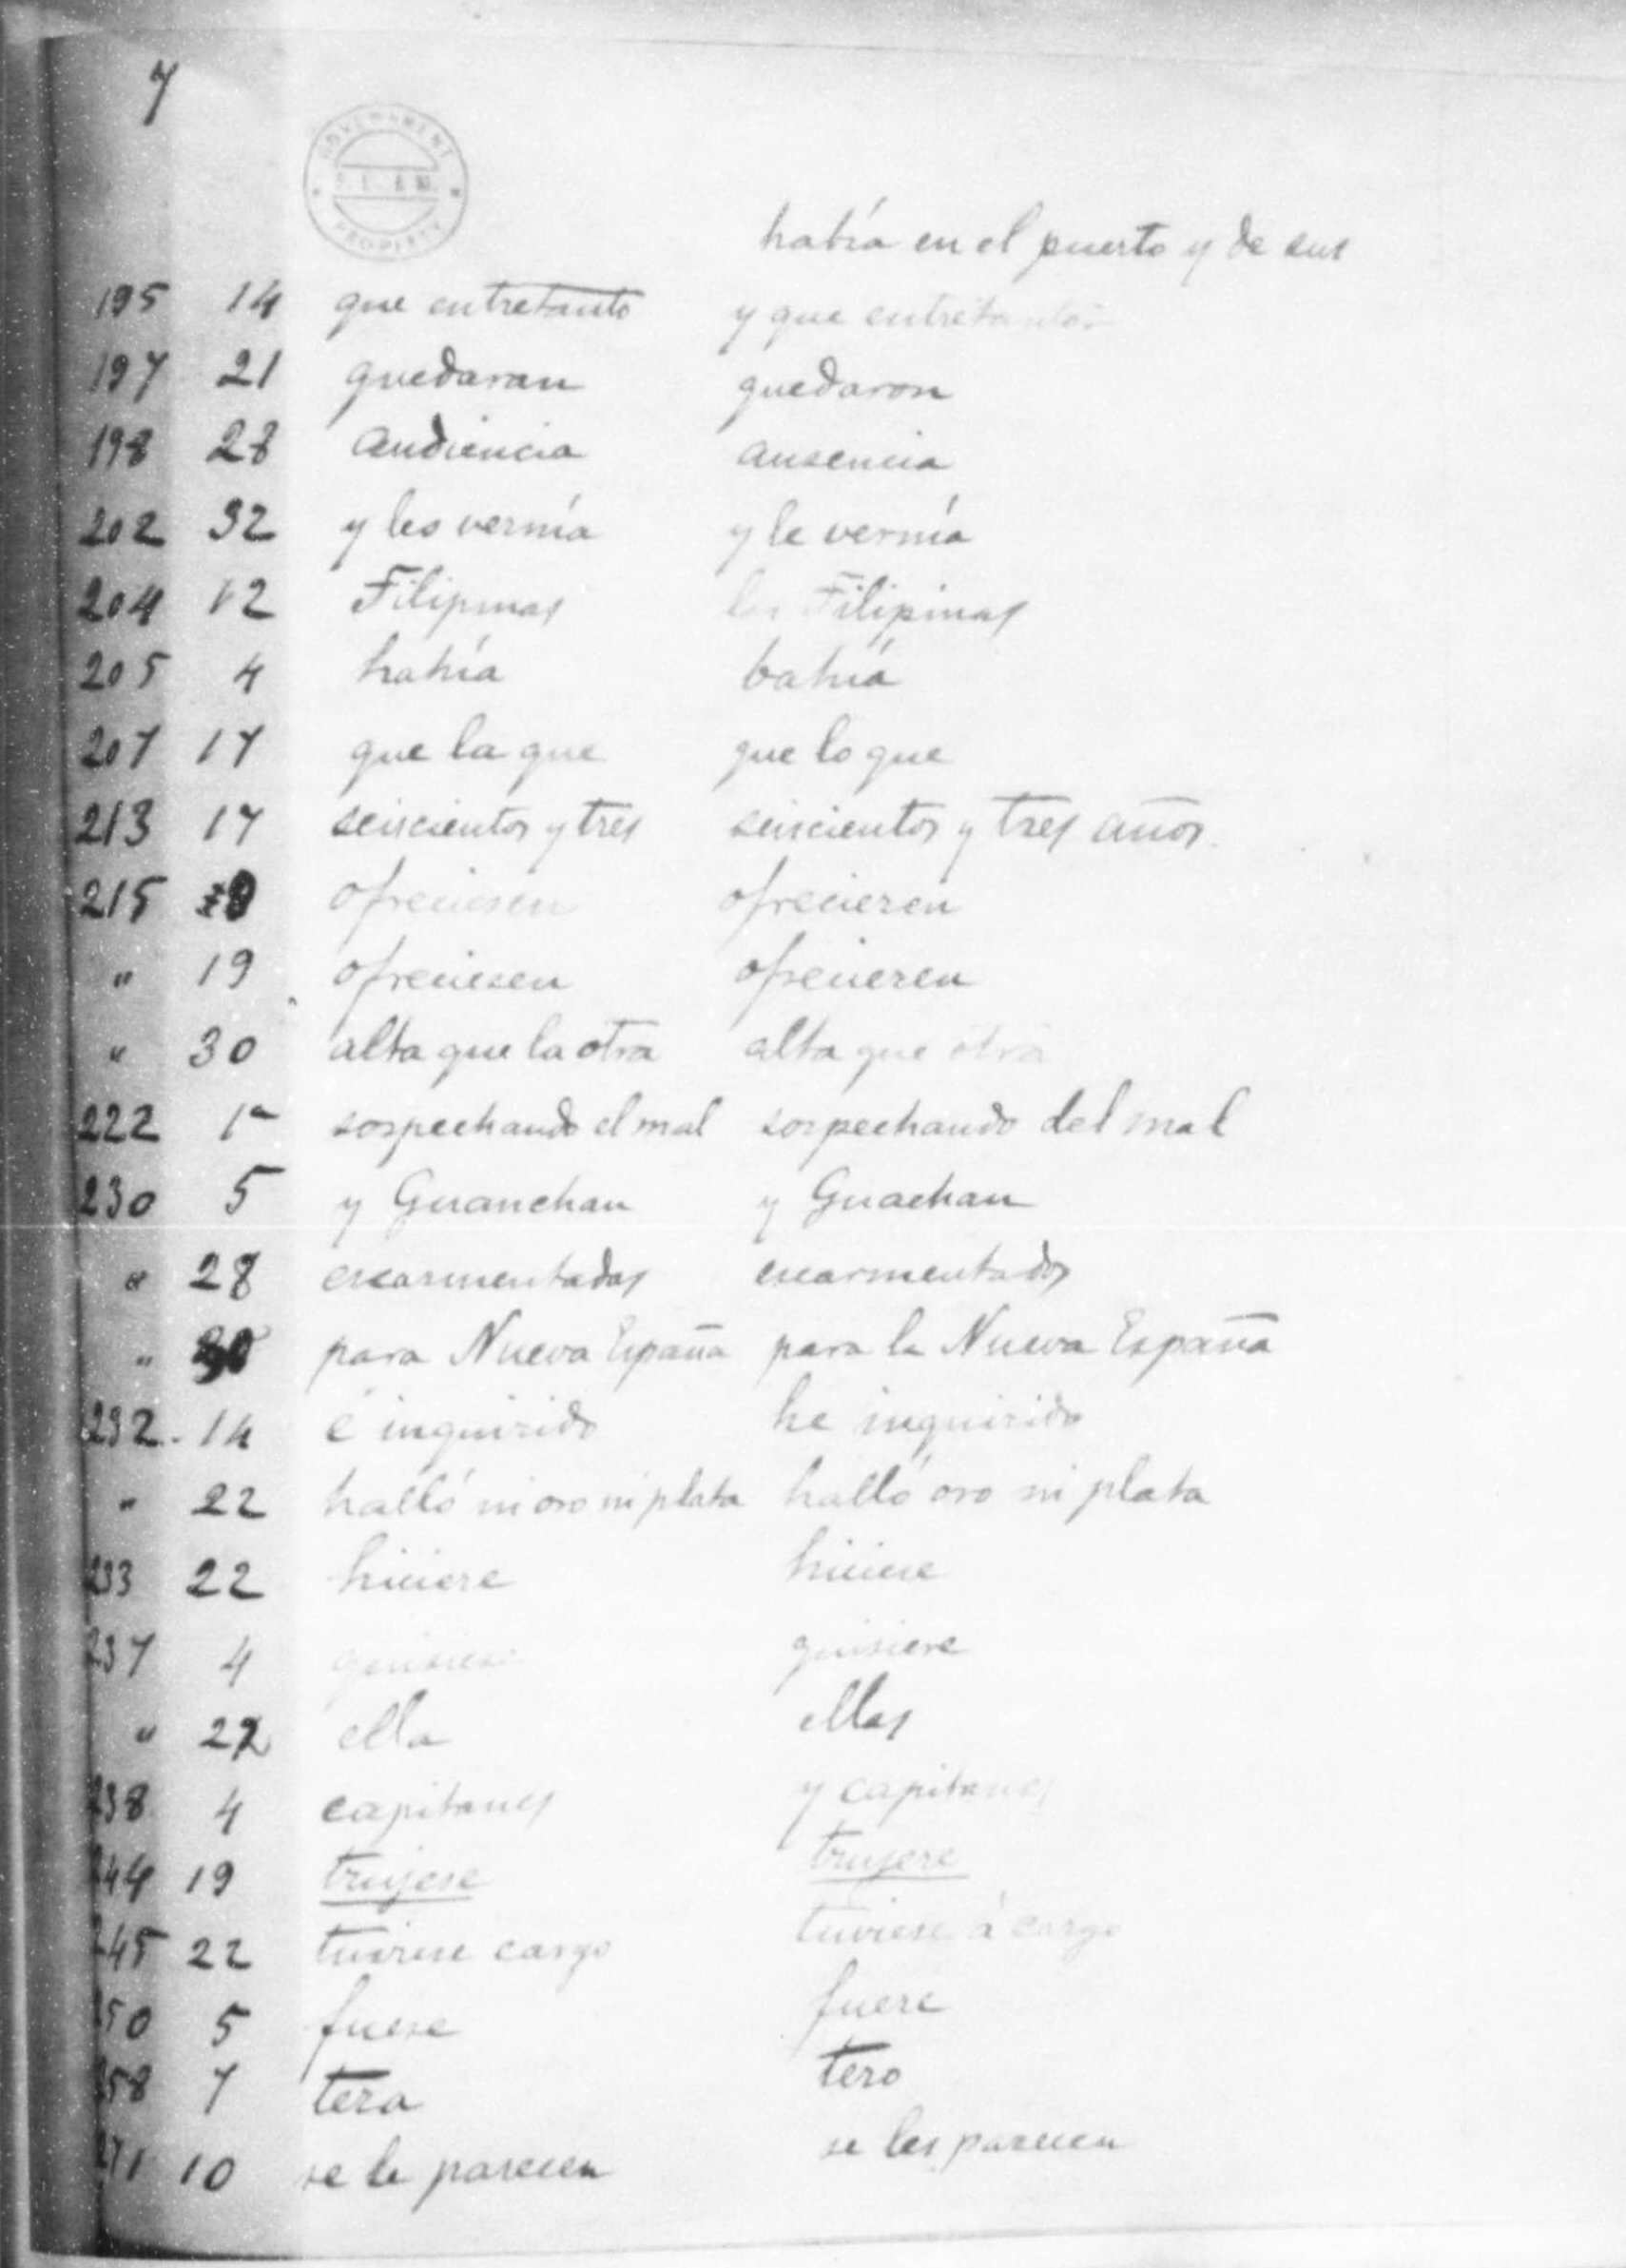 7
GOVERNMENT
PROPERTY
había en el puerto y de sus
195 14 que entretanto y que entretanto
197 21 quedaran quedaron
198 28 audiencia ausencia
202 32 y les vernía y le vernía
204 12 Filipinas las Filipinas
205 4 había bahía
207 17 que la que que lo que
213 17 seiscientos y tres seiscientos y tres años.
215 ofreciesen ofrecieren
" 19 ofreciesen ofrecieren
" 30 alta que la otra alta que otra
222 1a sospechando el mal sospechando del mal
230 5 y Guanchan y Guachan
" 28 escarmentadas escarmentados
" 30 para Nueva España para la Nueva España
232 - 14 é inquirido he inquirido
" 22 halló ni oro ni plata halló oro ni plata
233 22 hiciere hiciese
237 4 quisiese quisiere
" 22 ella ellas
238 4 capitanes y capitanes
244 19 trujese trujere
245 22 tuviese cargo tuviese á cargo
250 5 fuese fuere
258 7 tera tero
271 10 se le parecen se les parecen